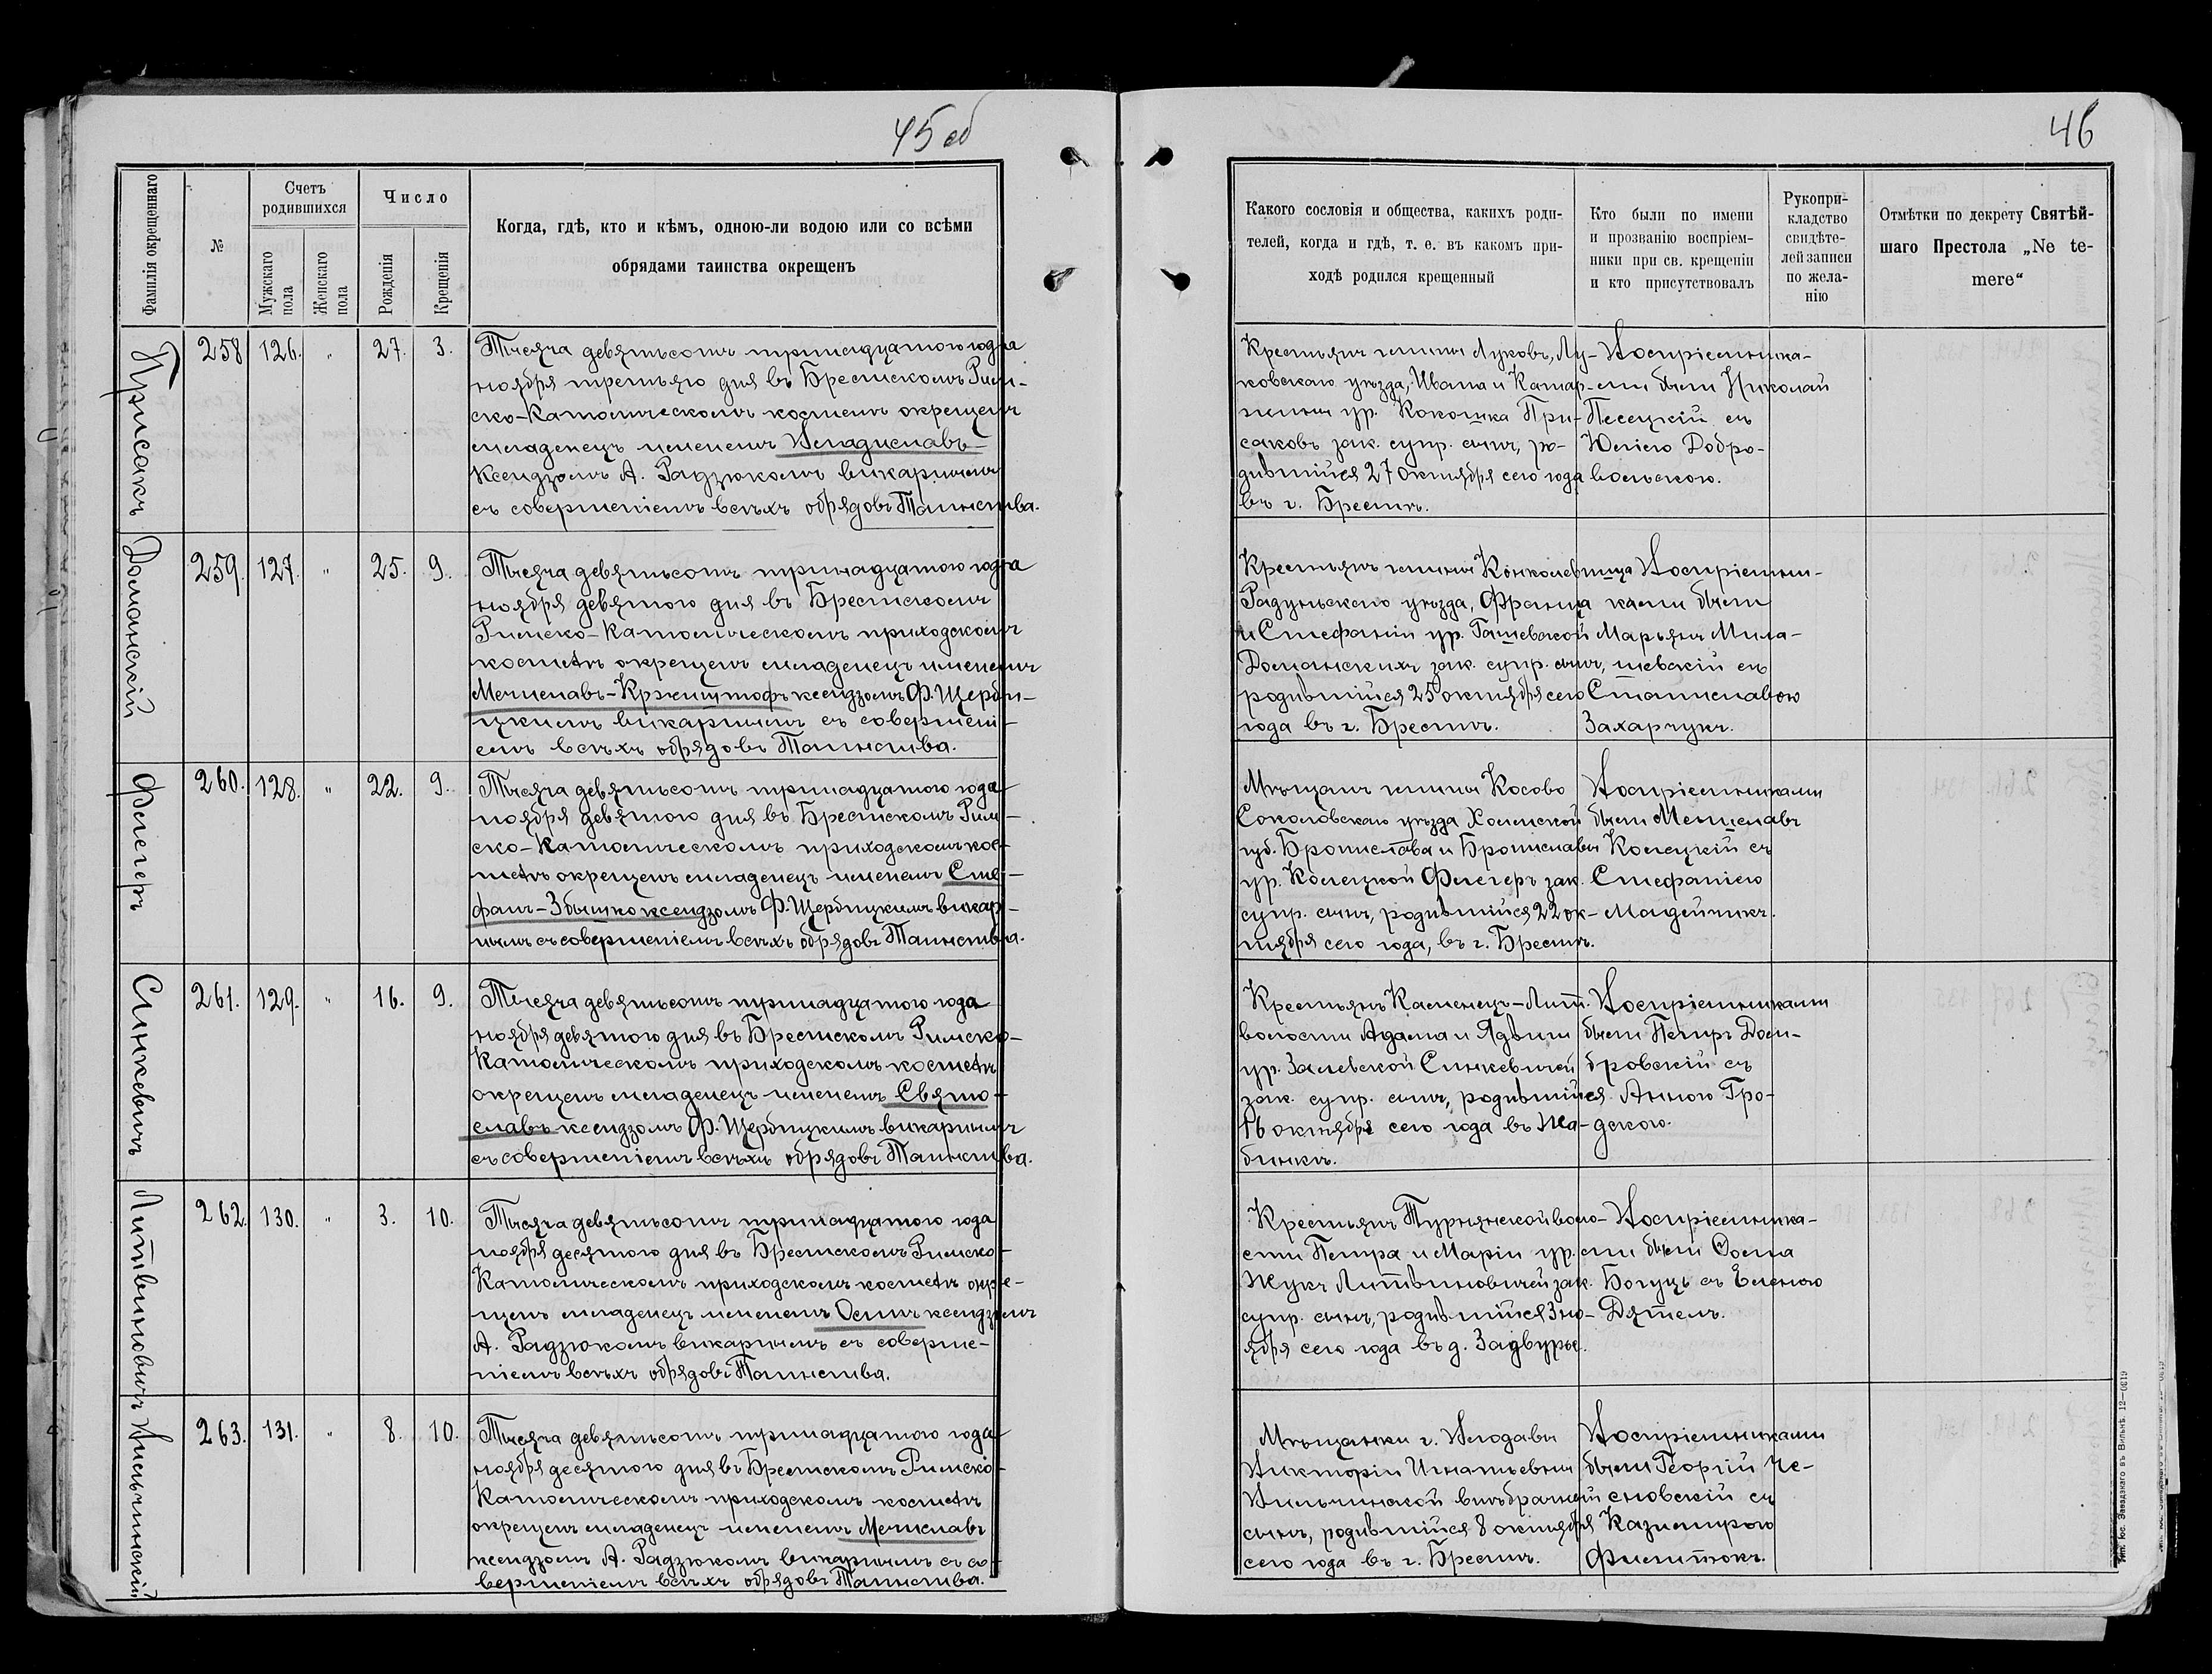 45 об
Фамилія окрещеннаго
№
Счетъ родившихся
Мужскаго пола
Женскаго пола
Число
Рожденія
Крещенія
Когда, гдѣ, кто и кѣмъ, одною-ли водою или со всѣми
обрядами таинства окрещенъ
Крисакъ
258 126. " 27. 3.
Тысяча девятьсотъ тринадцатого года
ноября третьяго дня въ Брестскомъ Рим-
ско-Католическомъ костелѣ окрещенъ
младенецъ именемъ Владиславъ
Ксендзомъ А. Радзюкомъ викарнымъ
съ совершеніемъ всѣхъ обрядовъ Таинства.
Доманскій
259. 127. " 25. 9.
Тысяча девятьсотъ тринадцатого года
ноября девятого дня въ Брестскомъ
Римско-Католическомъ приходскомъ
костелѣ окрещенъ младенецъ именемъ
Мечиславъ-Кржиштофъ ксендзомъ Ф. Щерби-
цкимъ викарнымъ съ совершені-
емъ всѣхъ обрядовъ Таинства.
Флегеръ
260. 128. " 22. 9.
Тысяча девятьсотъ тринадцатого года
ноября девятого дня въ Брестскомъ Рим-
ско-Католическомъ приходскомъ кос-
телѣ окрещенъ младенецъ именемъ Сте-
фанъ-Збышко ксендзомъ Ф. Щербицкимъ викар-
нымъ съ совершеніемъ всѣхъ обрядовъ Таинства.
Синкевичъ
261. 129. " 16. 9.
Тысяча девятьсотъ тринадцатого года
ноября девятого дня въ Брестскомъ Римско-
Католическомъ приходскомъ костелѣ
окрещенъ младенецъ именемъ Свято-
славъ ксендзомъ Ф. Щербицкимъ викарнымъ
съ совершеніемъ всѣхъ обрядовъ Таинства.
Литвиновичъ
262. 130. " 3. 10.
Тысяча девятьсотъ тринадцатого года
ноября десятого дня въ Брестскомъ Римско-
Католическомъ приходскомъ костелѣ окре-
щенъ младенецъ именемъ Осипъ ксендзомъ
А. Радзюкомъ викарнымъ съ соверше-
ніемъ всѣхъ обрядовъ Таинства.
Вильчинскій
263. 131. " 8. 10.
Тысяча девятьсотъ тринадцатого года
ноября десятого дня въ Брестскомъ Римско-
Католическомъ приходскомъ костелѣ
окрещенъ младенецъ именемъ Мечиславъ
ксендзомъ А. Радзюкомъ викарнымъ съ со-
вершеніемъ всѣхъ обрядовъ Таинства.
46
Какого сословія и общества, какихъ роди-
телей, когда и гдѣ, т. е. въ какомъ при-
ходѣ родился крещенный
Кто были по имени
и прозванію воспріем-
ники при св. крещеніи
и кто присутствовалъ
Рукопри-
кладство
свидѣте-
лей записи
по жела-
нію
Отмѣтки по декрету Святѣй-
шаго Престола „Ne te-
mere“
Крестьянъ гмины Луковъ, Лу-
ковскаго уѣзда, Ивана и Катар-
жины ур. Кокошка При-
саковъ зак. супр. сынъ, ро-
дившійся 27 октября сего года
въ г. Брестѣ.
Воспріемника-
ми были Николай
Песецкій съ
Юліею Добро-
вольскою.
Крестьянъ гмины Конколевница
Радуньскаго уѣзда, Франца
и Стефаніи ур. Гашевской
Доманскихъ зак. супр. сынъ,
родившійся 25 октября сего
года въ г. Брестѣ.
Воспріемни-
ками были
Марьянъ Мила-
шевскій съ
Станиславою
Захарчукъ.
Мѣщанъ гмины Косово
Соколовскаго уѣзда Холмской
губ. Бронислава и Брониславы
ур. Колецкой Флегеръ зак.
супр. сынъ, родившійся 22 ок-
тября сего года, въ г. Брестѣ.
Воспріемниками
были Мечиславъ
Колецкій съ
Стефаніею
Мадейчикъ.
Крестьянъ Каменецъ-Лит.
волости Адама и Ядвиги
ур. Залевской Синкевичей
зак. супр. сынъ, родившійся
16 октября сего года въ Жа-
бинкѣ.
Воспріемниками
были Петръ Дом-
бровскій съ
Анною Гро-
дскою.
Крестьянъ Турнянской воло-
сти Петра и Маріи ур.
Жукъ Литвиновичей зак.
супр. сынъ, родившійся 3 но-
ября сего года въ д. Задвурье.
Воспріемника-
ми были Ѳома
Богуцъ съ Еленою
Дятелъ.
Мѣщанки г. Влодавы
Викторіи Игнатьевны
Вильчинской внѣбрачный
сынъ, родившійся 8 октября
сего года въ г. Брестѣ.
Воспріемниками
были Георгій Че-
сновскій съ
Казимирою
Филитюкъ.
Тип. Іос. Завадзкаго въ Вильнѣ. 12—0619